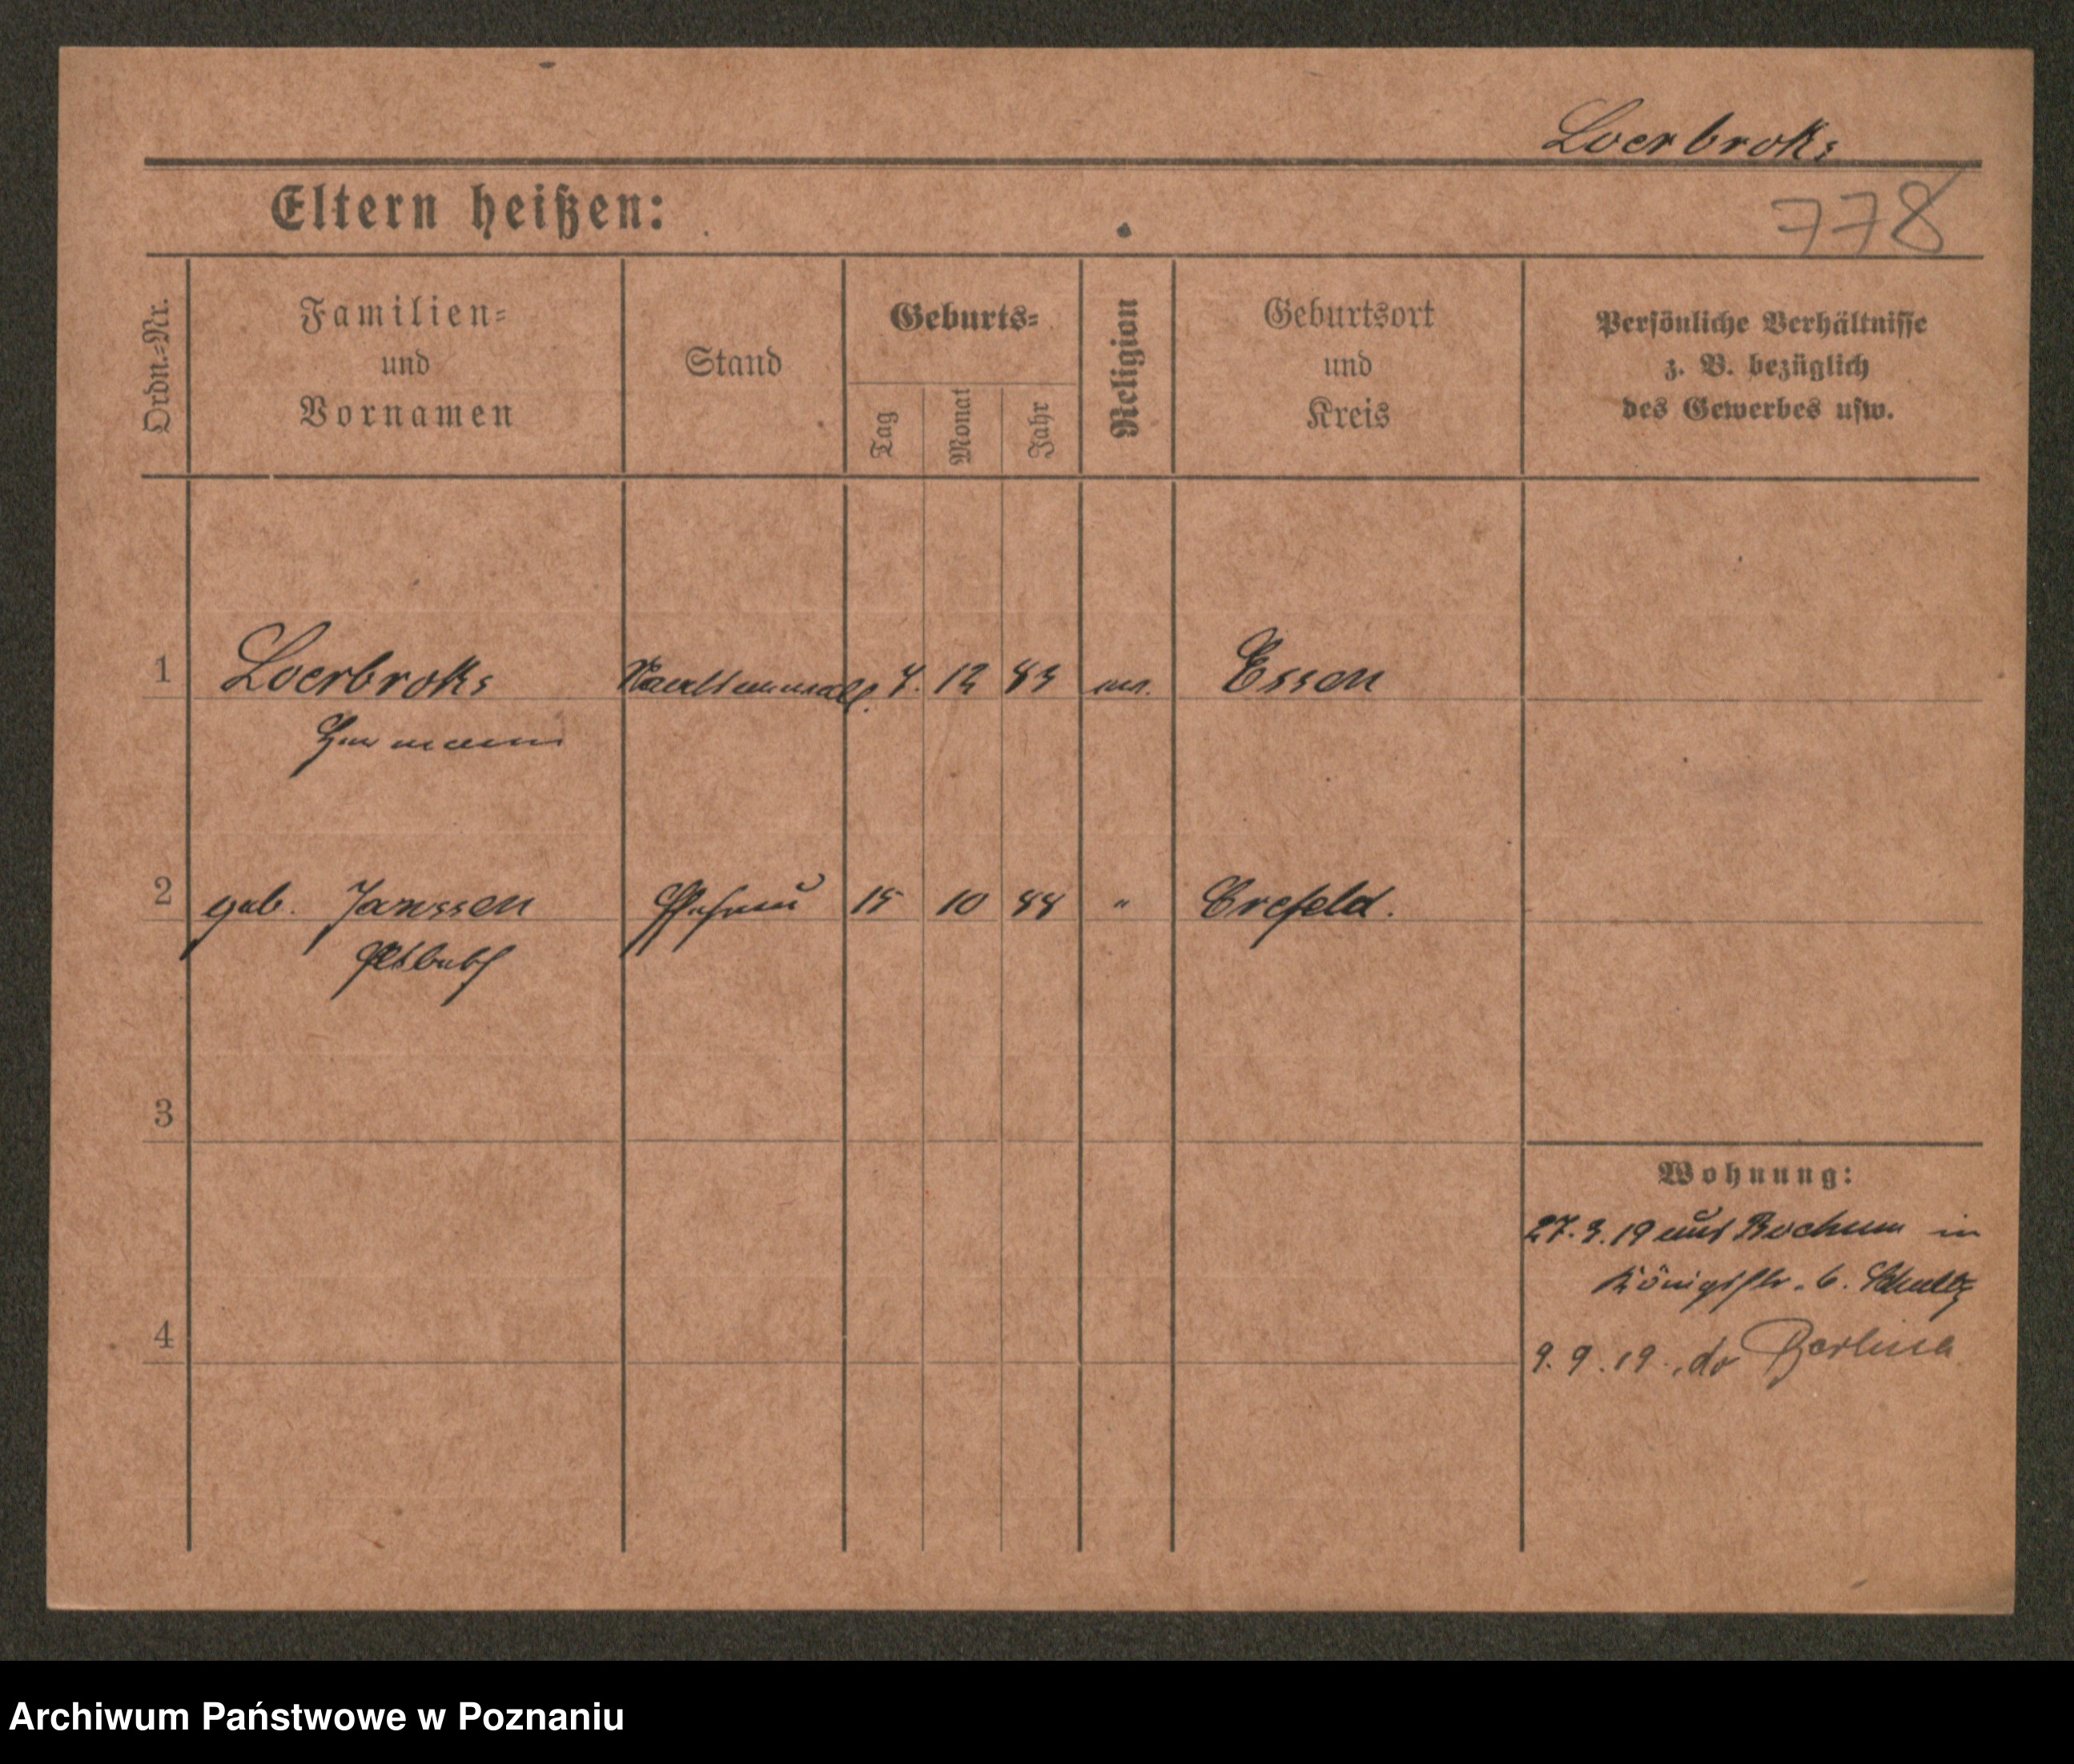 Loerbroks
Eltern heißen:
778
Ordn.-Nr.
Familien-
und
Vornamen
Stand
Geburts-
Tag
Monat
Jahr
Religion
Geburtsort
und
Kreis
Persönliche Verhältnisse
z. B. bezüglich
des Gewerbes usw.
1 Loerbroks 12 83 Essen
Hermann
2 geb. Janssen Ehefrau 15 10 88 " Crefeld.
3
4
Wohnung:
27.3.19 aus Bochum in
Königstr. 6. Schultz
9.9.19.
Archiwum Państwowe w Poznaniu